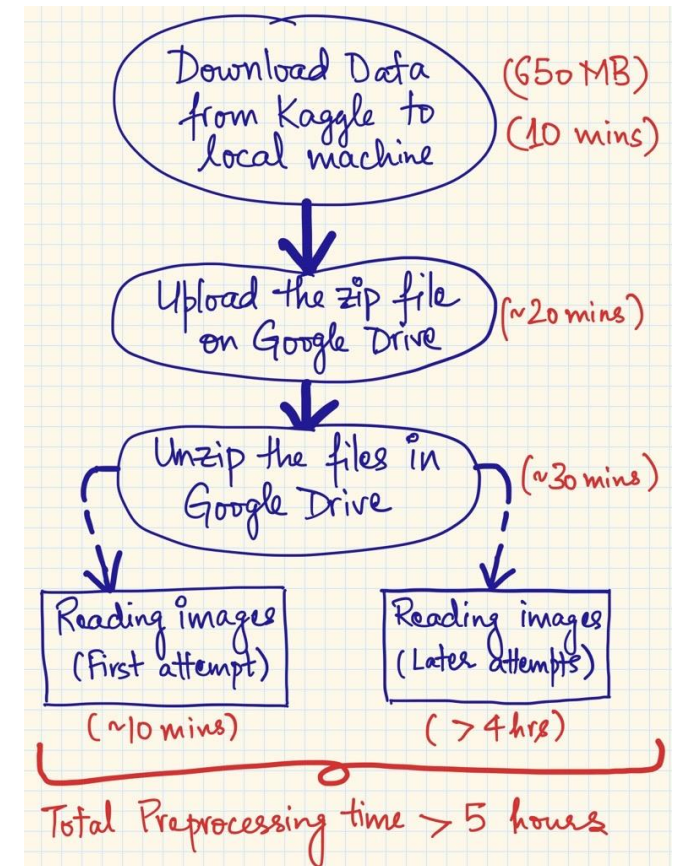 Download Data
from Kaggle to
local machine
(650 MB)
(10 mins)
Upload the zip file
on Google Drive
(~20 mins)
Unzip the files in
Google Drive
(~30 mins)
Reading images
(First attempt)
(~10 mins)
Reading images
(Later attempts)
( > 4 hrs)
Total Preprocessing time > 5 hours